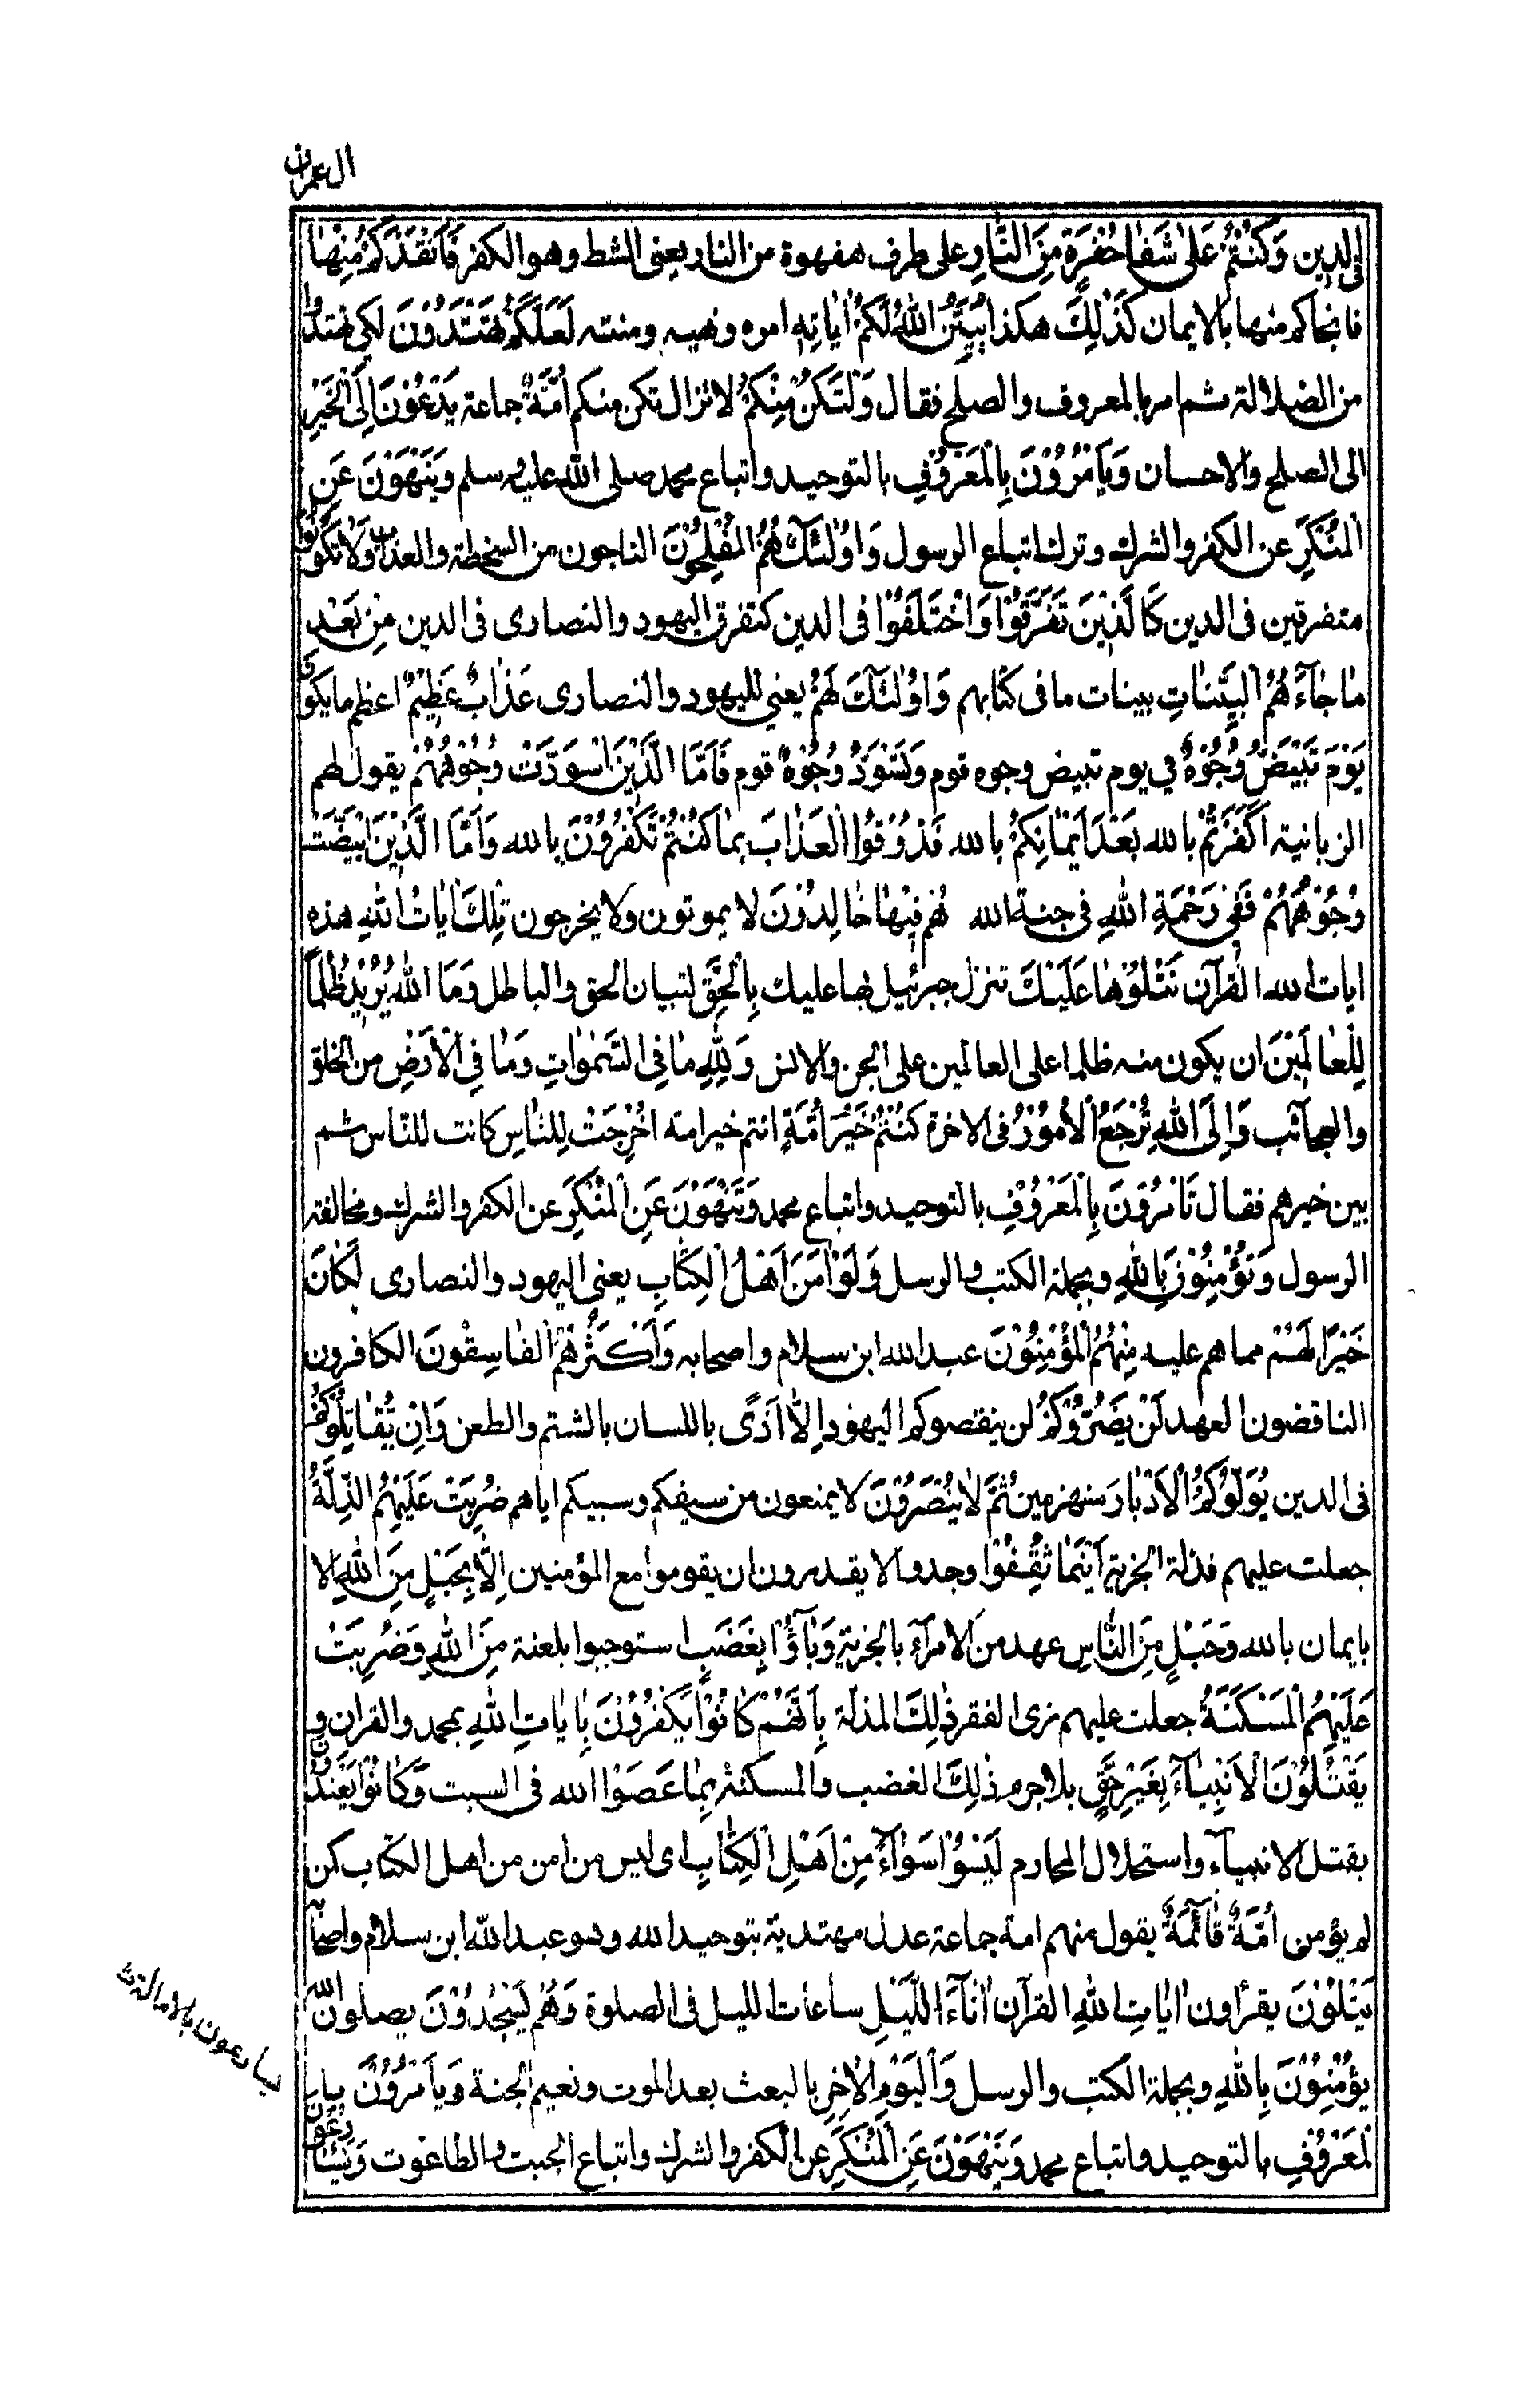 ال عمران
فى الدين وَكُنْتُمْ عَلىٰ شَفٰا حُفْرَةٍ مِنَ النّٰارِ على طرف هفهوة من النار يعنى الشط وهو الكفر فَاَنْقَذَكُمْ مِنْهٰا
فانجاكم منها بالايمان كَذٰلِكَ هكذا يُبَيِّنُ اللّٰهُ لَكُمْ اٰيٰاتِهِ امره ونهيه ومنته لَعَلَّكُمْ تَهْتَدُوْنَ لكى تهتدوا
من الضلالة ثم امر بالمعروف والصلح فقال وَلْتَكُنْ مِنْكُمْ لا تزال تكن منكم اُمَّةٌ جماعة يَدْعُوْنَ اِلَى الْخَيْرِ
الى الصلح والاحسان وَيَاْمُرُوْنَ بِالْمَعْرُوْفِ بالتوحيد واتباع محمد صلى الله عليه وسلم وَيَنْهَوْنَ عَنِ
الْمُنْكَرِ عن الكفر والشرك وترك اتباع الرسول وَاُولٰئِكَ هُمُ الْمُفْلِحُوْنَ الناجون من السخطة والعذاب وَلٰا تَكُوْنُوْا
متفرقين فى الدين كَالَّذِيْنَ تَفَرَّقُوْا وَاخْتَلَفُوْا فى الدين كتفرق اليهود والنصارى فى الدين مِنْ بَعْدِ
مٰا جٰاۤءَهُمُ الْبَيِّنٰاتِ بينات ما فى كتابهم وَاُولٰئِكَ لَهُمْ يعني لليهود والنصارى عَذٰابٌ عَظِيْمٌ اعظم ما يكون
يَوْمَ تَبْيَضُّ وُجُوْهٌ في يوم تبيض وجوه قوم وَتَسْوَدُّ وُجُوْهٌ قوم فَاَمَّا الَّذِيْنَ اسْوَدَّتْ وُجُوْهُهُمْ يقول لهم
الزبانية اَكَفَرْتُمْ بالله بَعْدَ اِيْمٰانِكُمْ بالله فَذُوْقُوا الْعَذٰابَ بِمٰا كُنْتُمْ تَكْفُرُوْنَ بالله وَاَمَّا الَّذِيْنَ ابْيَضَّتْ
وُجُوْهُهُمْ فَفِى رَحْمَةِ اللّٰهِ فى جنة الله هُمْ فِيْهٰا خٰالِدُوْنَ لا يموتون ولا يخرجون تِلْكَ اٰيٰاتُ اللّٰهِ هذه
ايات الله القرآن نَتْلُوْهٰا عَلَيْكَ تنزل جبرئيل بها عليك بِالْحَقِّ لتبيان الحق والباطل وَمَا اللّٰهُ يُرِيْدُ ظُلْمًا
لِلْعٰالَمِيْنَ ان يكون منه ظلما على العالمين على الجن والانس وَلِلّٰهِ مٰا فِى السَّمٰوٰاتِ وَمٰا فِى الْاَرْضِ من الخلق
والعجآئب وَاِلَى اللّٰهِ تُرْجَعُ الْاُمُوْرُ فى الاخرة كُنْتُمْ خَيْرَ اُمَّةٍ انتم خير امة اُخْرِجَتْ لِلنّٰاسِ كانت للنّاس ثم
بين خيرهم فقال تَاْمُرُوْنَ بِالْمَعْرُوْفِ بالتوحيد واتباع محمد وَتَنْهَوْنَ عَنِ الْمُنْكَرِ عن الكفر والشرك ومخالفة
الرسول وَتُؤْمِنُوْنَ بِاللّٰهِ وبجملة الكتب والرسل وَلَوْ اٰمَنَ اَهْلُ الْكِتٰابِ يعنى اليهود والنصارى لَكٰانَ
خَيْرًا لَهُمْ مما هم عليه مِنْهُمُ الْمُؤْمِنُوْنَ عبد الله ابن سلام واصحابه وَاَكْثَرُهُمُ الْفٰاسِقُوْنَ الكافرون
الناقضون العهد لَنْ يَضُرُّوْكُمْ لن ينقصوكم اليهود اِلّٰا اَذًى باللسان بالشتم والطعن وَاِنْ يُقٰاتِلُوْكُمْ
فى الدين يُوَلُّوْكُمُ الْاَدْبٰارَ منهزمين ثُمَّ لٰا يُنْصَرُوْنَ لا يمنعون من سيفكم وسبيكم اياهم ضُرِبَتْ عَلَيْهِمُ الذِّلَّةُ
جعلت عليهم مذلة الجزية اَيْنَمٰا ثُقِفُوْا وجدوا لا يقدرون ان يقوموا مع المؤمنين اِلّٰا بِحَبْلٍ مِنَ اللّٰهِ الا
بايمان بالله وَحَبْلٍ مِنَ النّٰاسِ عهد من الامرآء بالجزية وَبٰاۤؤُا بِغَضَبٍ استوجبوا بلعنة مِنَ اللّٰهِ وَضُرِبَتْ
عَلَيْهِمُ الْمَسْكَنَةُ جعلت عليهم زى الفقر ذٰلِكَ المذلة بِاَنَّهُمْ كٰانُوْا يَكْفُرُوْنَ بِاٰيٰاتِ اللّٰهِ بمحمد والقران وَ
يَقْتُلُوْنَ الْاَنْبِيٰاۤءَ بِغَيْرِ حَقٍّ بلا جرم ذٰلِكَ الغضب والمسكنة بِمٰا عَصَوْا الله فى السبت وَكٰانُوْا يَعْتَدُوْنَ
بقتل الانبيآء واستحلال المحارم لَيْسُوْا سَوٰاۤءً مِنْ اَهْلِ الْكِتٰابِ اى ليس من امن من اهل الكتاب كمن
لم يؤمن اُمَّةٌ قٰاۤئِمَةٌ يقول منهم امة جماعة عدل مهتدية بتوحيد الله وهو عبد الله ابن سلام واصحابه
يَتْلُوْنَ يقرأون اٰيٰاتِ اللّٰهِ القرآن اٰنٰاۤءَ اللَّيْلِ ساعات الليل فى الصلوة وَهُمْ يَسْجُدُوْنَ يصلون لله
يُؤْمِنُوْنَ بِاللّٰهِ وبجملة الكتب والرسل وَالْيَوْمِ الْاٰخِرِ بالبعث بعد الموت ونعيم الجنة وَيَاْمُرُوْنَ بِا
لْمَعْرُوْفِ بالتوحيد واتباع محمد وَيَنْهَوْنَ عَنِ الْمُنْكَرِ عن الكفر والشرك واتباع الجبت والطاغوت وَيُسٰارِعُوْنَ
يسارعون بالامالة ث